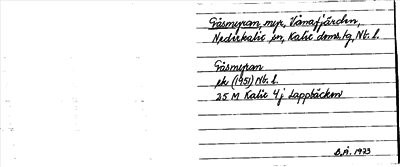 Gåsmyran, myr, Vånafjärden,
Nederkalix sn, Kalix doms.lg, Nt. l.
Gåsmyran
ek (1951) Nt. l.
25 M Kalix 4j Lappbäcken
B.Å. 1973